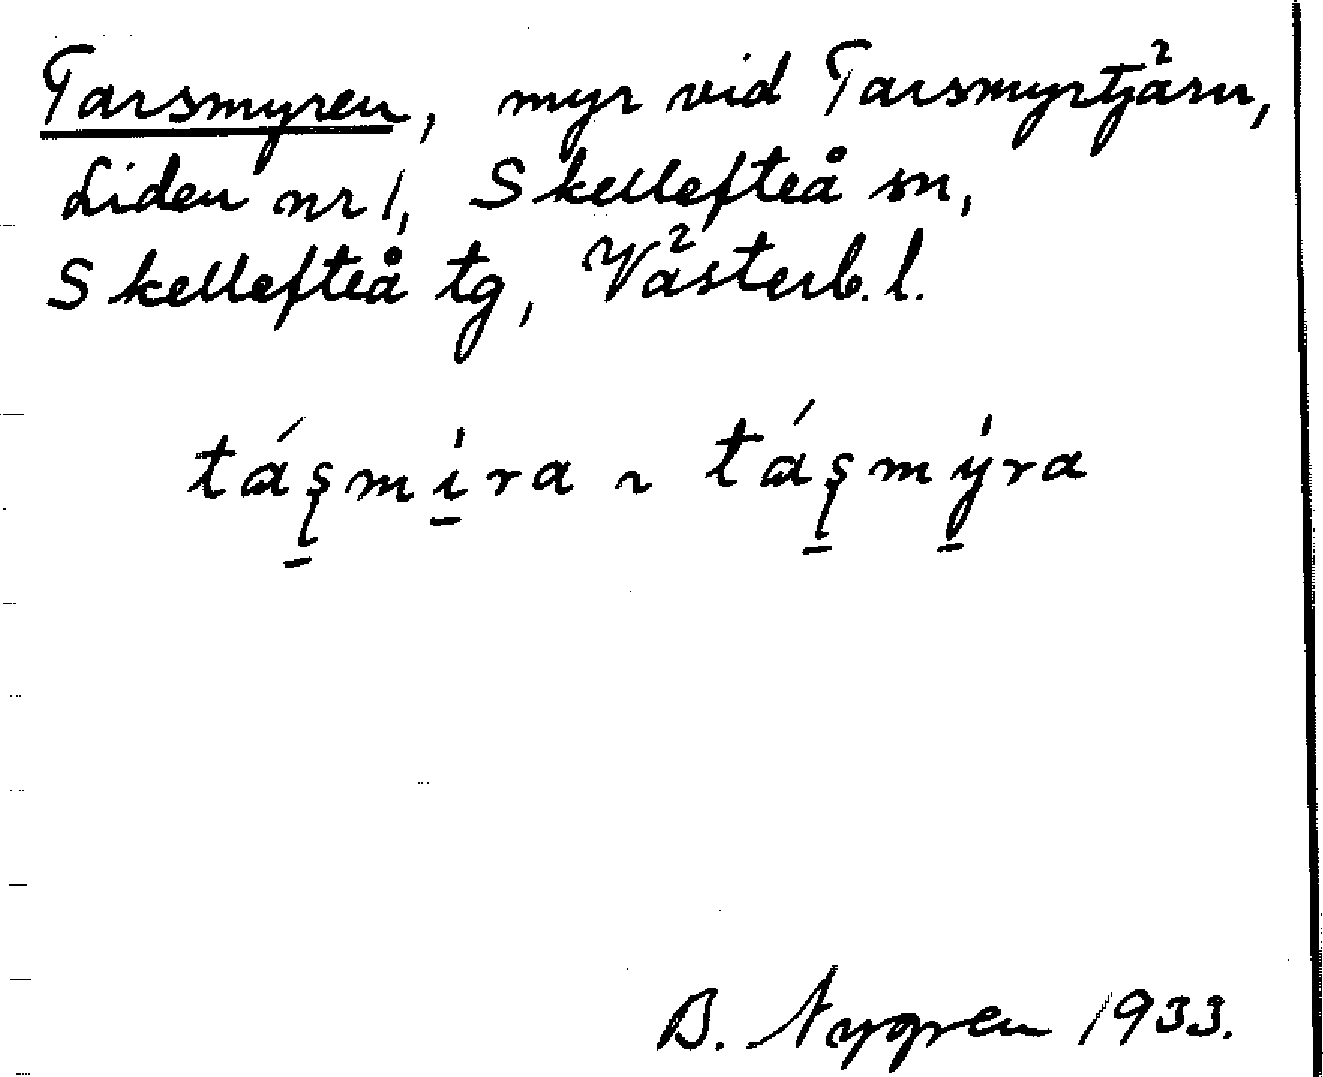 Tarsmyren, myr vid Tarsmyrtjärn,
Liden nr 1, Skellefteå sn,
Skellefteå tg, Västerb. l.
táşmi̠̍ra ~ táşmy̠̍ra
B. Nygren 1933.